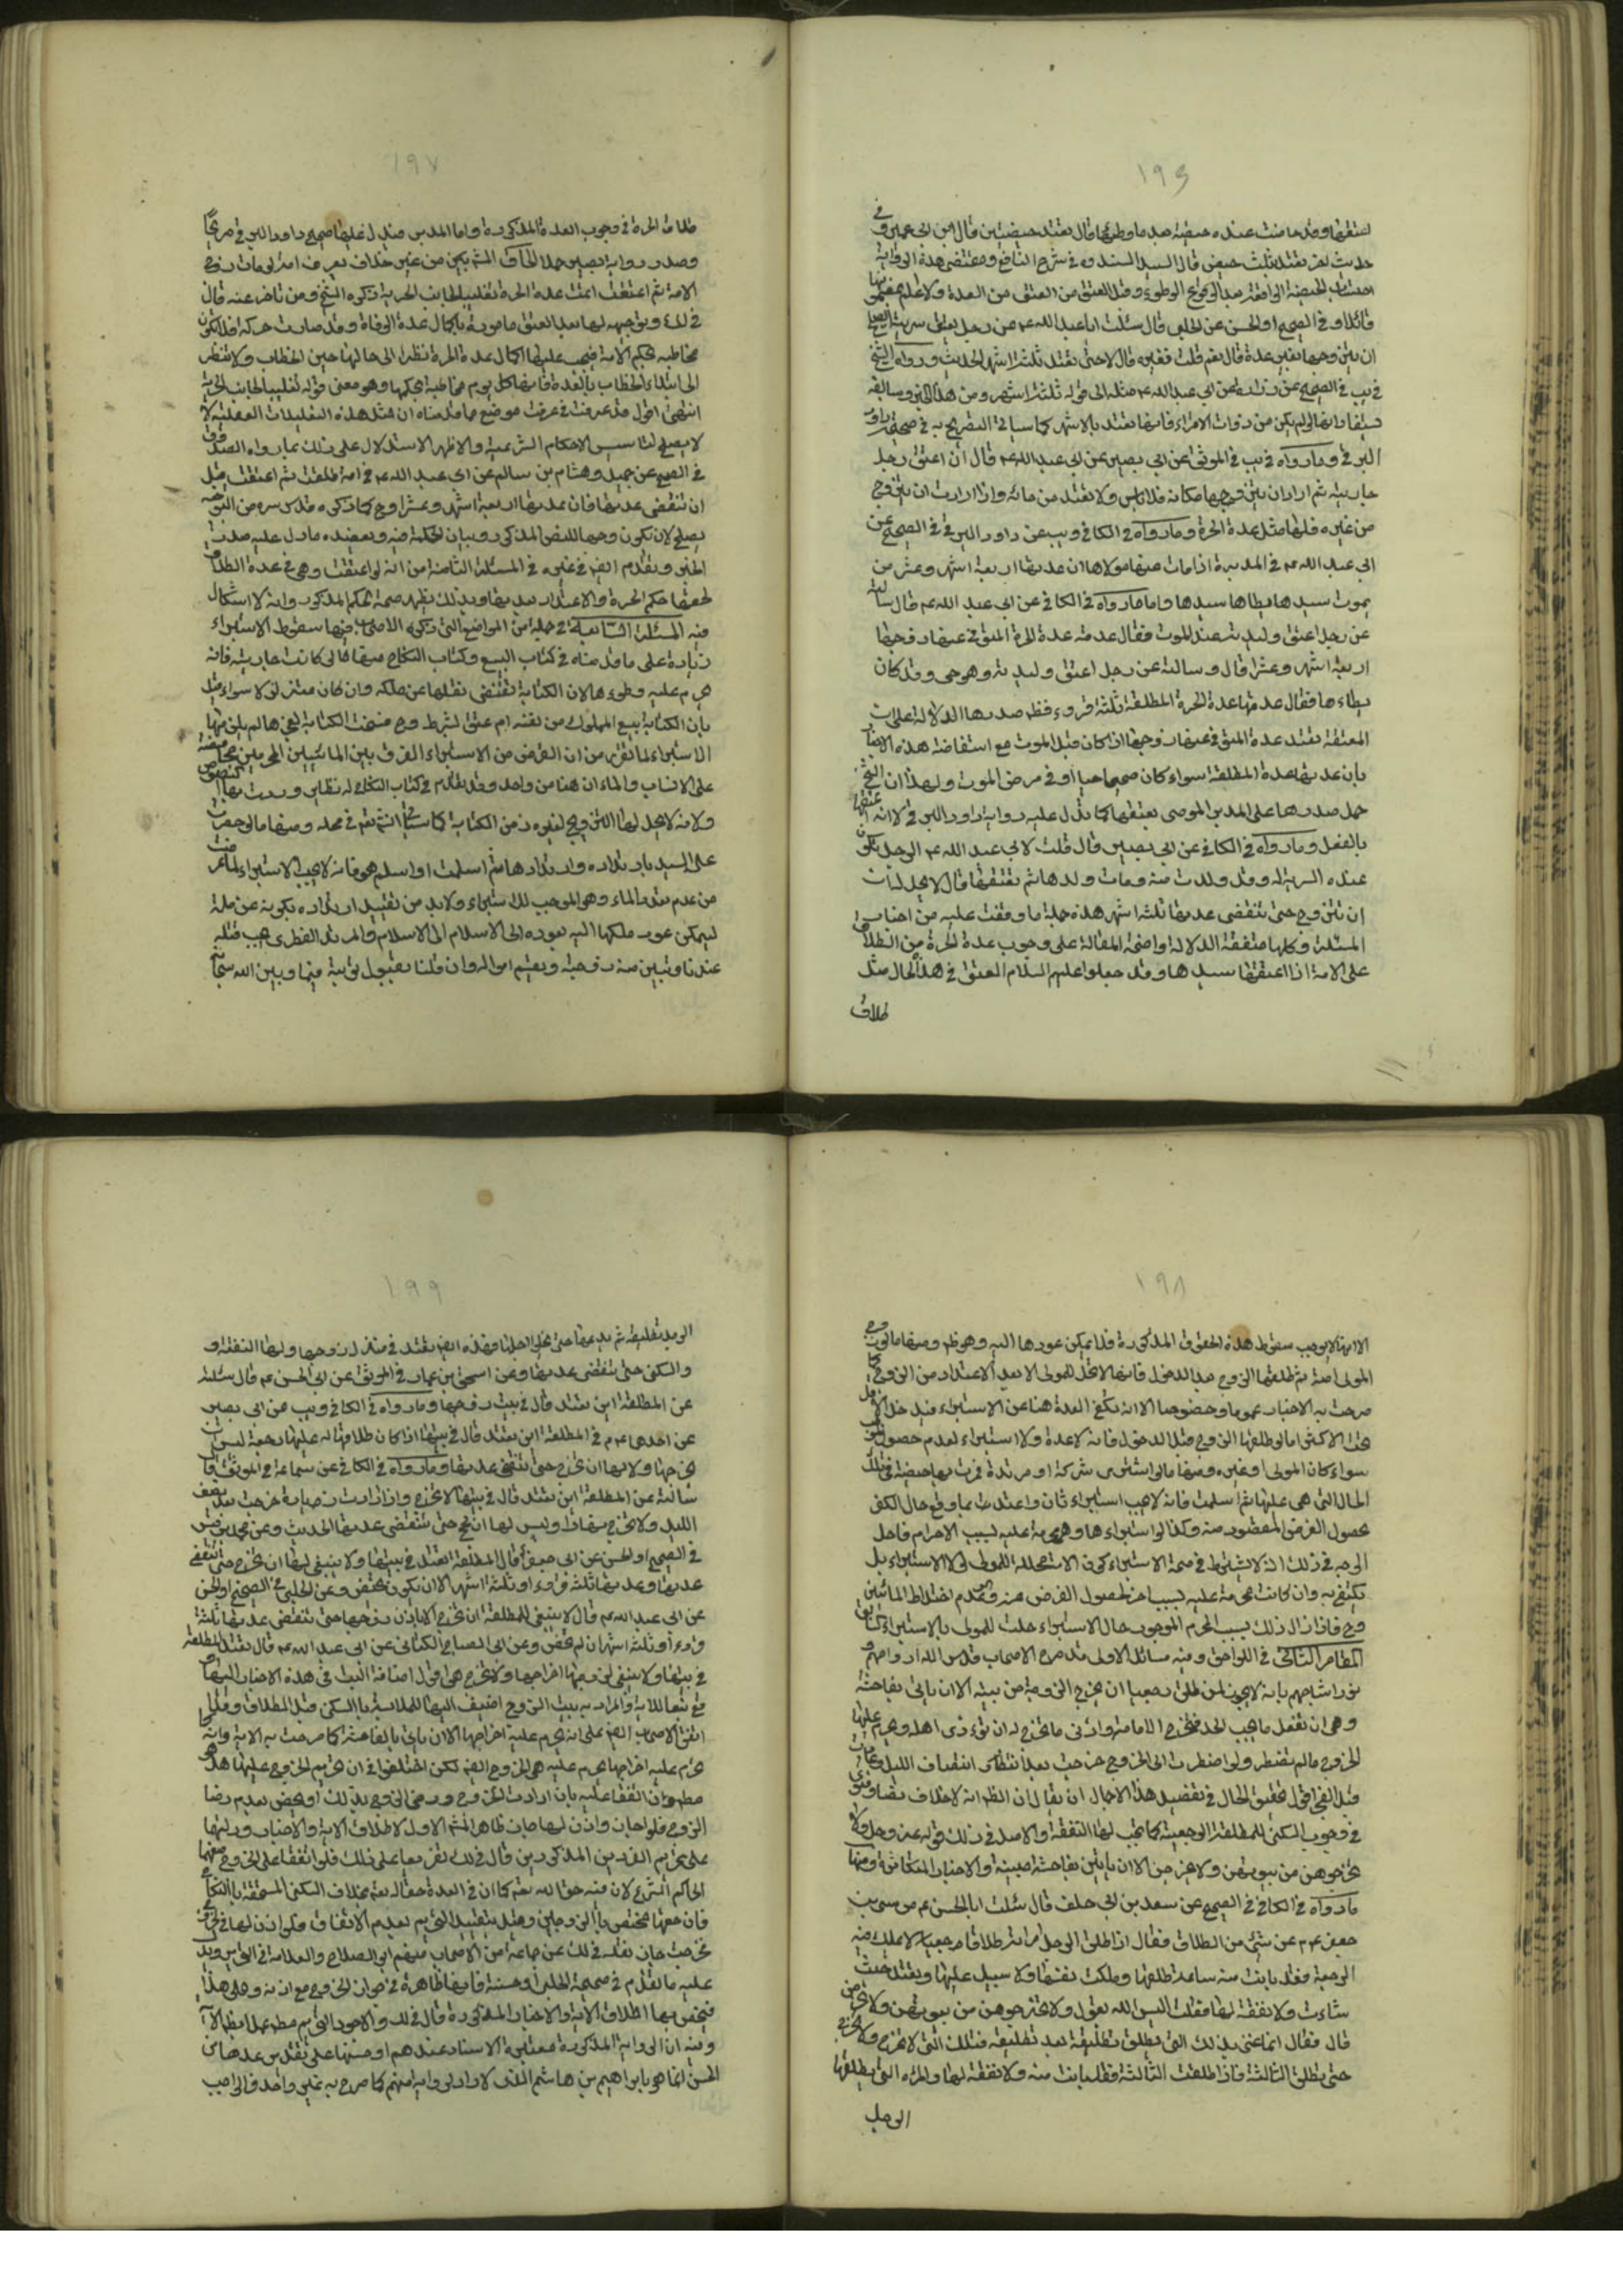 ١٩٦
استقرئها وقد حاضت عنده حيضة بعد ما وطئها قال تعتد بحيضتين قال ابن ابي عمير وفي
حديث اخر تعتد بثلث حيض قال السيد السند ره في شرح النافع ومقتضى هذه الرواية
احتساب الحيضة الواقعة بعد الوطوء وقبل العتق من العدة ولا اعلم بمضمونها
قائلا وفي الصحيح او الحسن عن الحلبي قال سئلت ابا عبد الله ع عن رجل يعتق سريته ايصلح
ان يتزوجها بغير عدة قال نعم قلت فغيره قال لا حتى تعتد ثلثة اشهر الحديث ورواه الشيخ
في يب في الصحيح عن زرارة عن ابي عبد الله ع مثله الى قوله ثلثة اشهر ومن هذا الخبر وسابقه
يستفاد انها لو لم يكن من ذوات الاقراء فانها تعتد بالاشهر كما سياتي التصريح به في صحيحة داود
الرقي وما رواه في يب في الموثق عن ابي بصير عن ابي عبد الله ع قال ان اعتق رجل
جاريته ثم اراد ان يتزوجها مكانه فلا باس ولا تعتد من مائه وان ارادت ان يتزوج
من غيره فلها مثل عدة الحرة وما رواه في الكافي ويب عن داود الرقي في الصحيح عن
ابي عبد الله ع في المدبرة اذا مات عنها مولاها ان عدتها اربعة اشهر وعشر من
يموت سيدها اذا كان سيدها يطاها واما ما رواه في الكافي عن ابي عبد الله ع قال سالته
عن رجل اعتق وليدته عند الموت فقال عدتها عدة الحرة المتوفى عنها زوجها
اربعة اشهر وعشرا قال وسالته عن رجل اعتق وليدته وهو حي وقد كان
يطاءها فقال عدتها عدة الحرة المطلقة ثلثة قروء فظهر صدرها الدلالة على ان
المعتقة تعتد عدة المتوفى عنها زوجها اذا كان قبل الموت مع استفاضة هذه الاخبار
بان عدتها عدة المطلقة سواء كان صحيحا حيا او في مرض الموت ولهذا ان الشيخ
حمل صدرها على المدبر الموصى بعتقها كما تدل عليه رواية داود الرقي لانه اعتقها
بالفعل وما رواه في الكافي عن ابي بصير قال قلت لابي عبد الله ع الرجل تكون
عنده السرية له وقد ولدت منه ومات ولدها ثم يعتقها قال لا يحل لها
ان تتزوج حتى تنقضي عدتها ثلثة اشهر هذه جملة ما وقفت عليه من اخبار
المسئلة وكلها متفقة الدلالة واضحة المقالة على وجوب عدة الحرة من الطلاق
على الامة اذا اعتقها سيدها وقد جعلوا عليهم السلام العتق في هذا الحال مثل
طلاق
١٩٧
طلاق الحرة في وجوب العدة المذكورة واما المدبر فيدل عليها صحيح داود الرقي صريحا
وصدر رواية الحلبي بحمل الشيخ من غير خلاف يعرف انه لو مات زوج
الامة ثم اعتقت اتمت عدة الحرة تغليبا لجانب الحرية ذكره الشيخ ومن تاخر عنه قال
في لك ويتوجه لها بعد العتق مامورة باكمال عدة الوفاة وقد صارت حرة فلا تكون
مخاطبة بحكم الامة فيجب عليها اكمال عدة الحرة نظرا الى حالها حين الخطاب ولا تنظر
الى ابتداء الخطاب بالعدة فانها كل يوم مخاطبة بحكمها وهو معنى قوله تغليبا لجانب الحرية
انتهى اقول قد عرفت في غير موضع مما قدمناه ان مثل هذه التعليلات العقلية لا
لا يصلح لتاسيس الاحكام الشرعية والاظهر الاستدلال على ذلك بما رواه الصدوق
في الصحيح عن جميل وهشام بن سالم عن ابي عبد الله ع في امة طلقت ثم اعتقت قبل
ان تنقضي عدتها فان عدتها اربعة اشهر وعشرا وما ذكره قدس سره من التوجيه
يصلح لان يكون وجها للنص المذكور وبيان الحكمة فيه ويعضده ما دل عليه صدر
الخبر وتقدم ايضا في غيره في المسئلة الثامنة من انه لو اعتقت وهي في عدة الطلاق
لحقها حكم الحرة والاعتداد بعدتها وبذلك يظهر صحة الحكم المذكور وانه لا اشكال
فيه المسئلة التاسعة في جملة من المواضع التي ذكر الاصحاب فيها سقوط الاستبراء
زيادة على ما قدمناه في كتاب البيع وكتاب النكاح منها ما لو كاتب جاريته فانه
يحرم عليه وطوءها لان الكتابة تقتضي نقلها عن ملكه وان كان متزلزلا سواء قيل
بان الكتابة بيع المملوك من نفسه ام عتق بشرط ومتى فسخت الكتابة لعجزها لم يلزمها
الاستبراء لما تقرر من ان الغرض من الاستبراء الفرق بين المائين المحرمين محافظة
على الانساب والماء ان هنا من واحد وقد تقدم في كتاب النكاح له نظائر وردت بها النصوص
ولانه لا يحل لها التزويج لغيره زمن الكتابة كما سياتي انشاء الله تعالى في محله ومنها ما لو حرمت
على السيد بارتداده وارتدادها ثم اسلمت او اسلم هو فانه لا يجب الاستبراء لما عرفت
من عدم تعدد الماء وهو الموجب للاستبراء ولا بد من تقييد ارتداده بكونه عن ملة
ليمكن عود ملكها اليه بعوده الى الاسلام والمرتد الفطري يجب قتله
عندنا وتبين منه زوجته ويقسم امواله وان قلنا بقبول توبته فيما وبين الله سبحانه
١٩٨
الا انها لا توجب سقوط هذه الحقوق المذكورة فلا يمكن عودها اليه وهو ظاهر ومنها ما لو زوج
المولى امته ثم طلقها الزوج بعد الدخول فانها لا تحل للمولى الا بعد الاعتداد من الزوج كما
صرحت به الاخبار عموما وخصوصا الا انه تكفي العدة هنا عن الاستبراء فيدخل الاقل
تحت الاكثر اما لو طلقها الزوج قبل الدخول فانه لا عدة ولا استبراء لعدم حصول
سواء كان المولى او غيره ومنها ما لو اشترى مشركة او مرتدة فمرت بها حيضة في تلك
الحال التي هي عليها ثم اسلمت فانه لا يجب استبراء ثان واعتدت بما وقع حال الكفر
لحصول الغرض المقصود منه وكذا لو استبراءها وهي محرمة عليه بسبب الاحرام فاحل
الوجه في ذلك انه لا يشترط في صحة الاستبراء كون الامة محللة للمولى لولا الاستبراء بل
يكتفى به وان كانت محرمة عليه بسبب اخر لحصول الغرض منه وهو عدم اختلاط المائين
وح فاذا زال ذلك بسبب المحرم الموجود حال الاستبراء حلت للمولى بالاستبراء السابق
المقام الثاني في اللواحق وفيه مسائل الاولى قد صرح الاصحاب قدس الله ارواحهم
نور اشباحهم بانه لا يجوز لمن طلق رجعيا ان يخرج الزوجة من بيته الا ان ياتي بفاحشة
وهي ان تفعل ما يجب الحد فتخرج لاقامته وادنى ما تخرج له ان تؤذي اهله ويحرم عليها
الخروج ما لم تضطر ولو اضطرت الى الخروج خرجت بعد انتصاف الليل وعادت
قبل الفجر اقول تحقيق الحال في تفصيل هذا الاجمال ان يقال ان الظاهر انه لا خلاف نصا وفتوى
في وجوب السكنى للمطلقة الرجعية كما تجب لها النفقة والاصل في ذلك قوله عز وجل ولا
تخرجوهن من بيوتهن ولا يخرجن الا ان ياتين بفاحشة مبينة والاخبار المتكاثرة ومنها
ما رواه في الكافي في الصحيح عن سعد بن ابي خلف قال سئلت ابا الحسن ع موسى بن
جعفر ع عن شئ من الطلاق فقال اذا طلق الرجل امراته طلاقا لا يملك فيه
الرجعة فقد بانت منه ساعة طلقها وملكت نفسها ولا سبيل عليها وتعتد حيث
شاءت ولا نفقة لها فقلت اليس الله يقول ولا تخرجوهن من بيوتهن ولا يخرجن
قال فقال انما عنى بذلك التي يطلق تطليقة بعد تطليقة فتلك التي لا تخرج ولا تخرج
حتى يطلق الثالثة فاذا طلقت الثالثة فقد بانت منه ولا نفقة لها والمراة التي يطلقها
الرجل
١٩٩
الرجل تطليقة ثم يدعها حتى يخلو اجلها فهذه ايضا تعتد في منزل زوجها ولها النفقة و
والسكنى حتى تنقضي عدتها وعن اسحق بن عمار في الموثق عن ابي الحسن ع قال سئلته
عن المطلقة اين تعتد قال في بيت زوجها وما رواه في الكافي ويب عن ابي بصير
عن احدهما ع في المطلقة اين تعتد قال في بيتها اذا كان طلاقا له عليها رجعة ليس له ان
يخرجها ولا لها ان تخرج حتى تنقضي عدتها وما رواه في الكافي عن سماعة في الموثق قال
سالته عن المطلقة اين تعتد قال في بيتها لا تخرج وان ارادت زيارة خرجت بعد نصف
الليل ولا تخرج نهارا وليس لها ان تحج حتى تنقضي عدتها الحديث وعن محمد بن قيس
في الصحيح او الحسن عن ابي جعفر ع قال المطلقة تعتد في بيتها ولا ينبغي لها ان تخرج حتى تنقضي
عدتها وعدتها ثلثة قروء او ثلثة اشهر الا ان تكون تحيض وعن الحلبي في الصحيح او الحسن
عن ابي عبد الله ع قال لا ينبغي للمطلقة ان تخرج الا باذن زوجها حتى تنقضي عدتها ثلثة
قروء او ثلثة اشهر ان لم تحض وعن ابي الصباح الكناني عن ابي عبد الله ع قال تعتد المطلقة
في بيتها ولا ينبغي لزوجها اخراجها ولا تخرج هي اقول اضافة البيت في هذه الاخبار اليها
وقع تبعا للاية والمراد به بيت الزوج اضيف اليها للملابسة بالسكنى قبل الطلاق وقد
اتفق الاصحاب ايضا على انه يحرم عليه اخراجها الا ان ياتي بالفاحشة كما صرحت به الاية وانه
يحرم عليه اخراجها يحرم عليها هي الخروج ايضا لكن اختلفوا في ان تحريم الخروج عليها هل هو
مطلق وان اتفقا عليه بان ارادت الخروج ورضى الزوج بذلك او يختص بعدم رضا
الزوج فلو اجاب واذن لها جاز ظاهر المشهور الاول لاطلاق الاية والاخبار ودلالتها
على تحريم الفردين المذكورين قال في لك تفريعا على ذلك فلو اتفقا على الخروج منعهما
الحاكم الشرعي لان فيه حقا لله تعالى كما ان في العدة حقا لله تعالى بخلاف السكنى المستحقة بالنكاح
فان حقها مختص بالزوجين وقيل بتقييد التحريم بعدم الاتفاق فلو اذن لها في الخروج
فخرجت جاز نقله في لك عن جماعة من الاصحاب منهم ابو الصلاح والعلامة في التحرير ويدل
عليه ما تقدم في صحيحة الحلبي او حسنة فانها ظاهرة في جواز الخروج مع اذنه وعلى هذا
فيخص بها اطلاق الاية والاخبار المذكورة قال في لك والاجود التحريم مطلقا عملا بظاهر الاية
وفيه ان الرواية المذكورة معتبرة الاسناد عندهم او حسنها على تقدير عدها في
الحسن انما هو بابراهيم بن هاشم الذي لا راد لروايته منهم كما صرح به غير واحد فالواجب